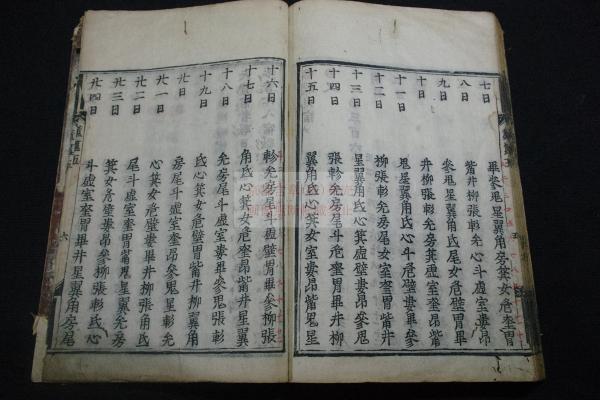 七日 畢參鬼星翼角房箕女危奎胃
八日 觜井柳張軫亢心斗虛室婁昴
九日 參鬼星翼角氐尾女危壁胃畢
十日 井柳張軫亢房箕虛室奎昴觜
十一日 鬼星翼角氐心斗危壁婁畢參
十二日 柳張軫亢房尾女室奎胃觜井
十三日 星翼角氐心箕虛壁婁昴參鬼
十四日 張軫亢房尾斗危奎胃畢井柳
十五日 翼角氐心箕女室婁昴觜鬼星
十六日 軫亢房尾斗虛壁胃畢參柳張
十七日 角氐心箕女危奎昴觜井星翼
十八日 亢房尾斗虛室婁畢參鬼張軫
十九日 氐心箕女危壁胃觜井柳翼角
廿日 房尾斗虛室奎昴參鬼星軫亢
廿一日 心箕女危壁婁畢井柳張角氐
廿二日 尾斗虛室奎胃觜鬼星翼亢房
廿三日 箕女危壁婁昴參柳張軫氐心
廿四日 斗虛室奎胃畢井星翼角房尾
六